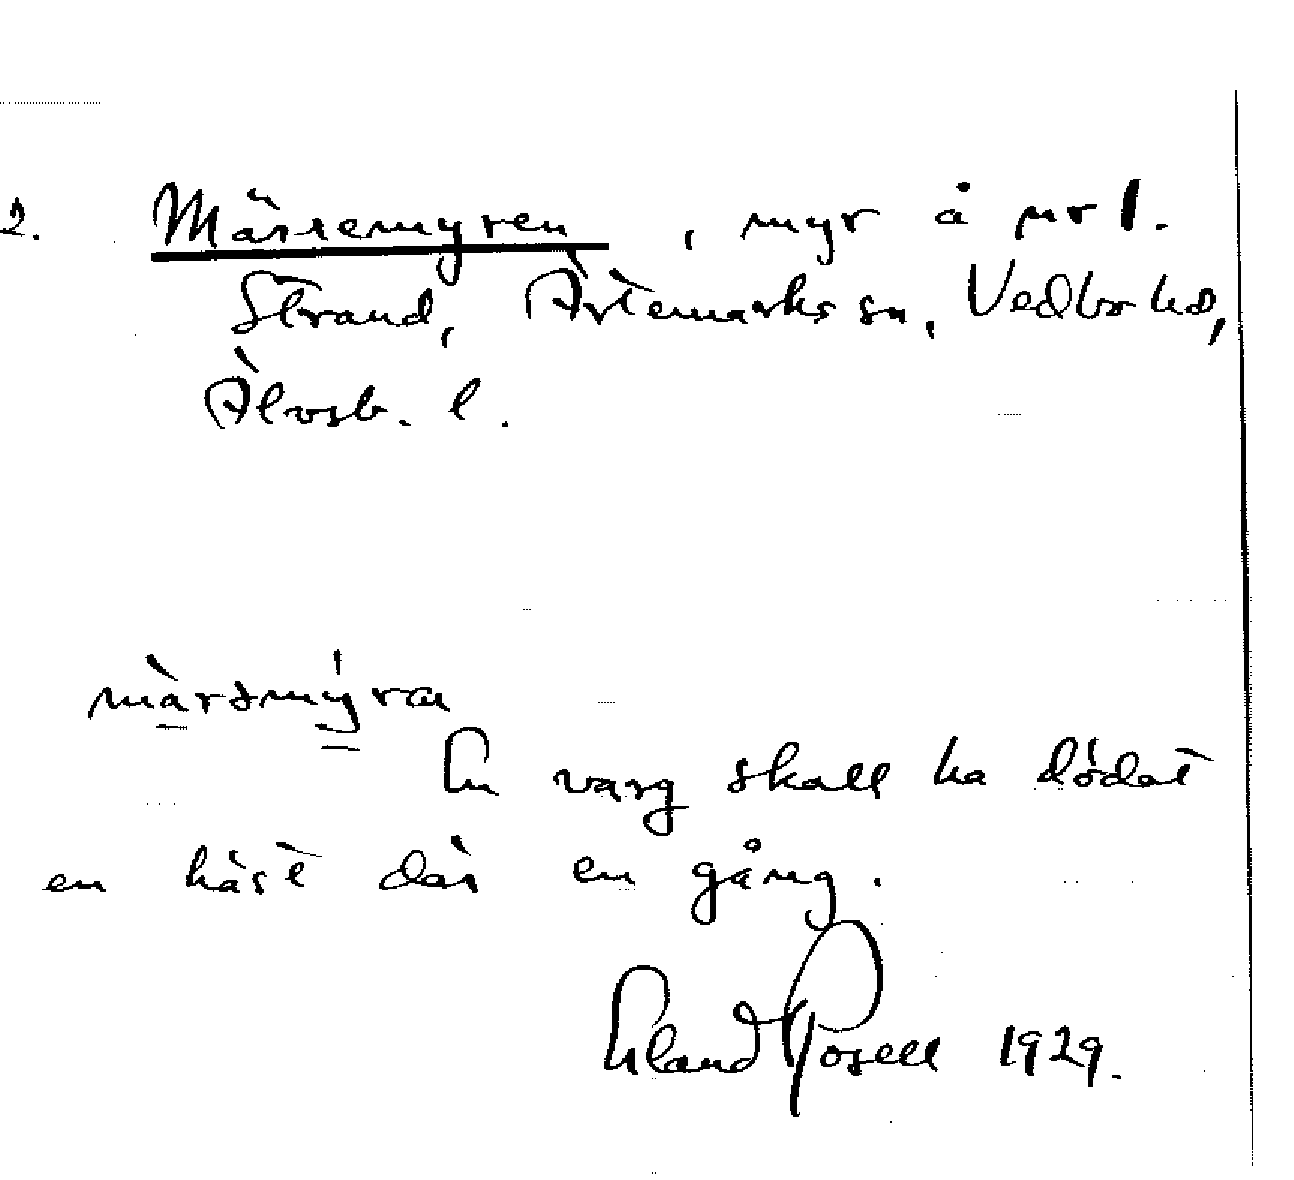 2. Märremyren, myr å nr 1.
Strand, Ärtemarks sn, Vedbo hd,
Älvsb. l.
En varg skall ha dödat
en häst där en gång.
Erland Rosell 1929.